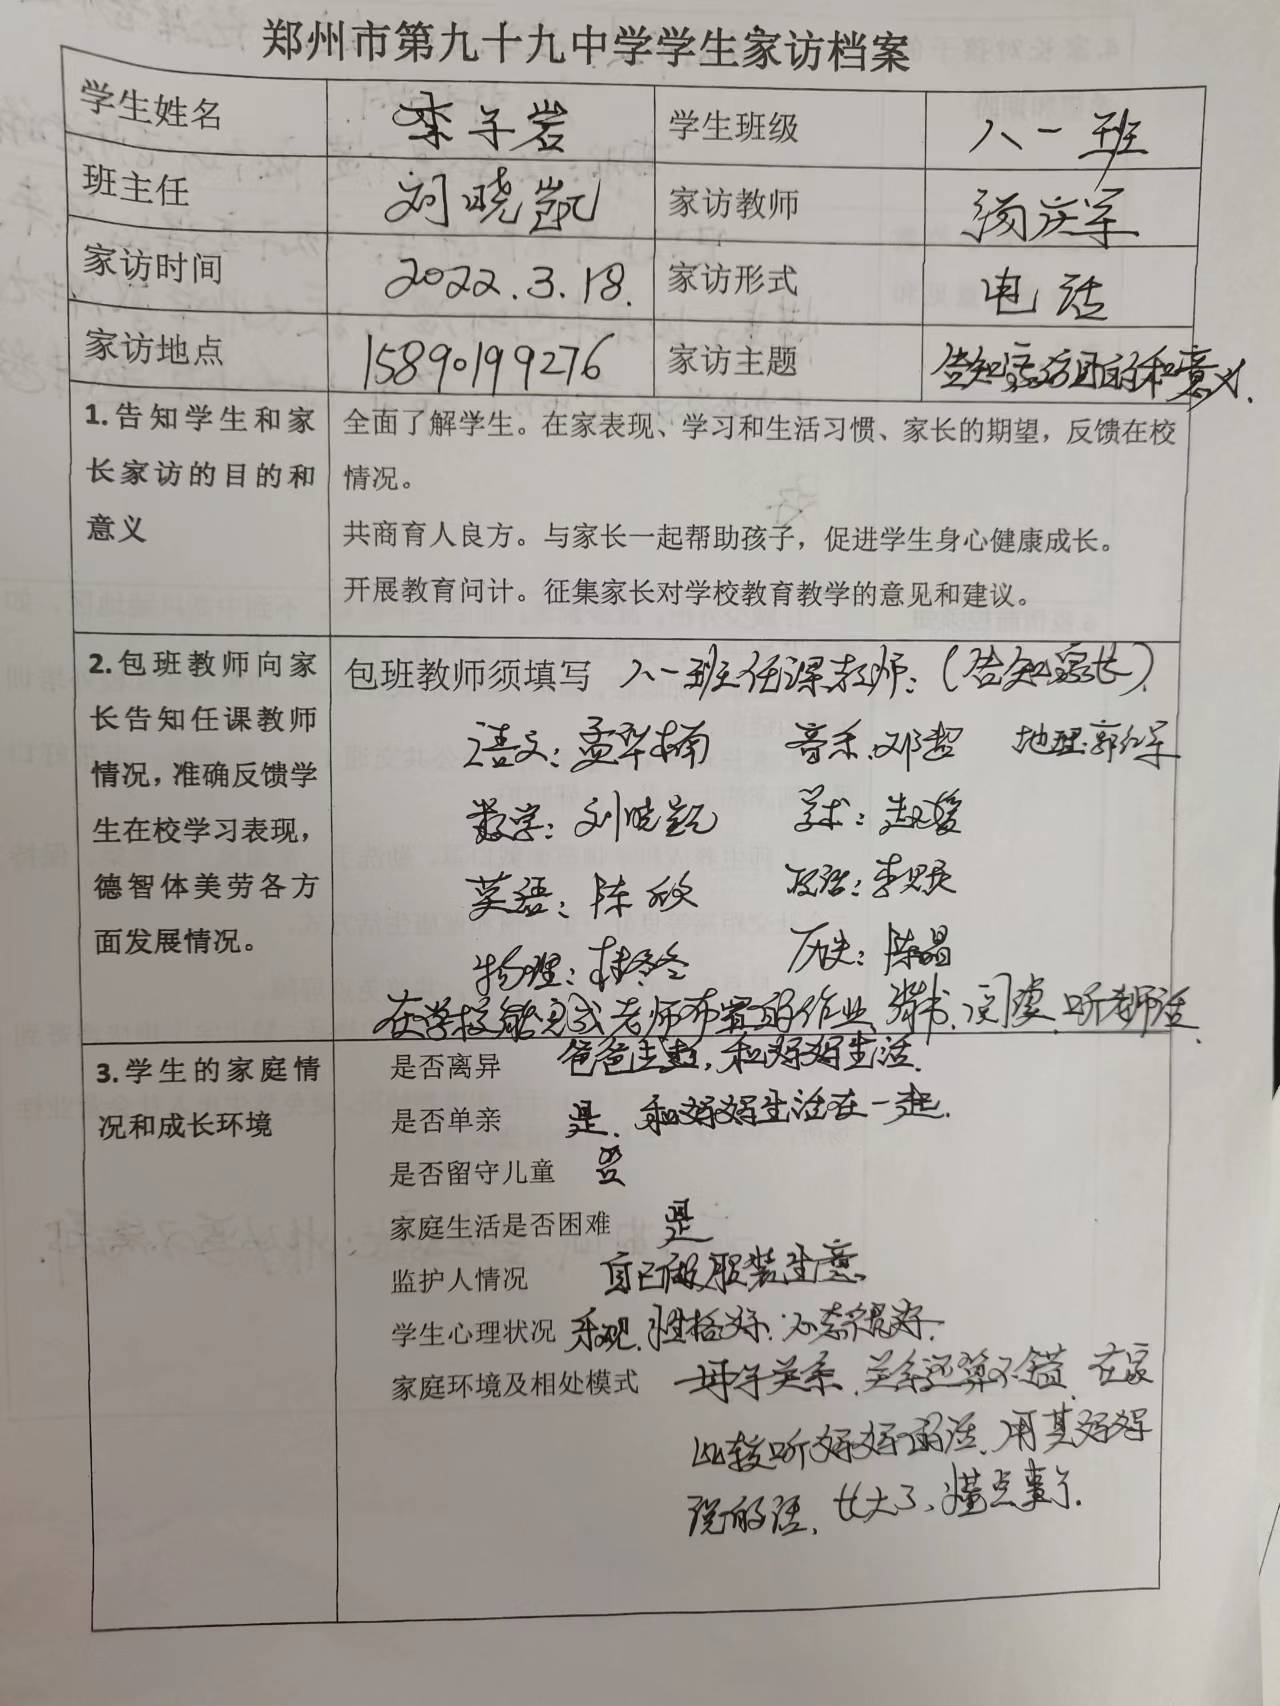 郑州市第九十九中学学生家访档案
学生姓名 李子岩 学生班级 八一班
班主任 刘晓凯 家访教师 庆军
家访时间 2022.3.18. 家访形式 电话
家访地点 15890199276 家访主题 告知家访目的和意义.
1.告知学生和家
长家访的目的和
意义
全面了解学生。在家表现、学习和生活习惯、家长的期望，反馈在校
情况。
共商育人良方。与家长一起帮助孩子，促进学生身心健康成长。
开展教育问计。征集家长对学校教育教学的意见和建议。
2.包班教师向家
长告知任课教师
情况，准确反馈学
生在校学习表现，
德智体美劳各方
面发展情况。
包班教师须填写 八一班任课教师：(告知家长).
语文：孟华楠 音乐：邓超 地理：郭红军
数学：刘晓凯 学术：赵媛
英语：陈欣 政治：李
物理：桂 历史：陈晶
在学校能完成老师布置的作业、背书、阅读、听老师话.
3.学生的家庭情
况和成长环境
是否离异 爸爸去世，和妈妈生活.
是否单亲 是、和妈妈生活在一起.
是否留守儿童 否
家庭生活是否困难 是
监护人情况 自己做服装生意
学生心理状况 乐观、性格好、心态很好.
家庭环境及相处模式 母子关系、关系还算不错、在家
比较听妈妈的话、用其妈妈
说的话、长大了、懂点事了.